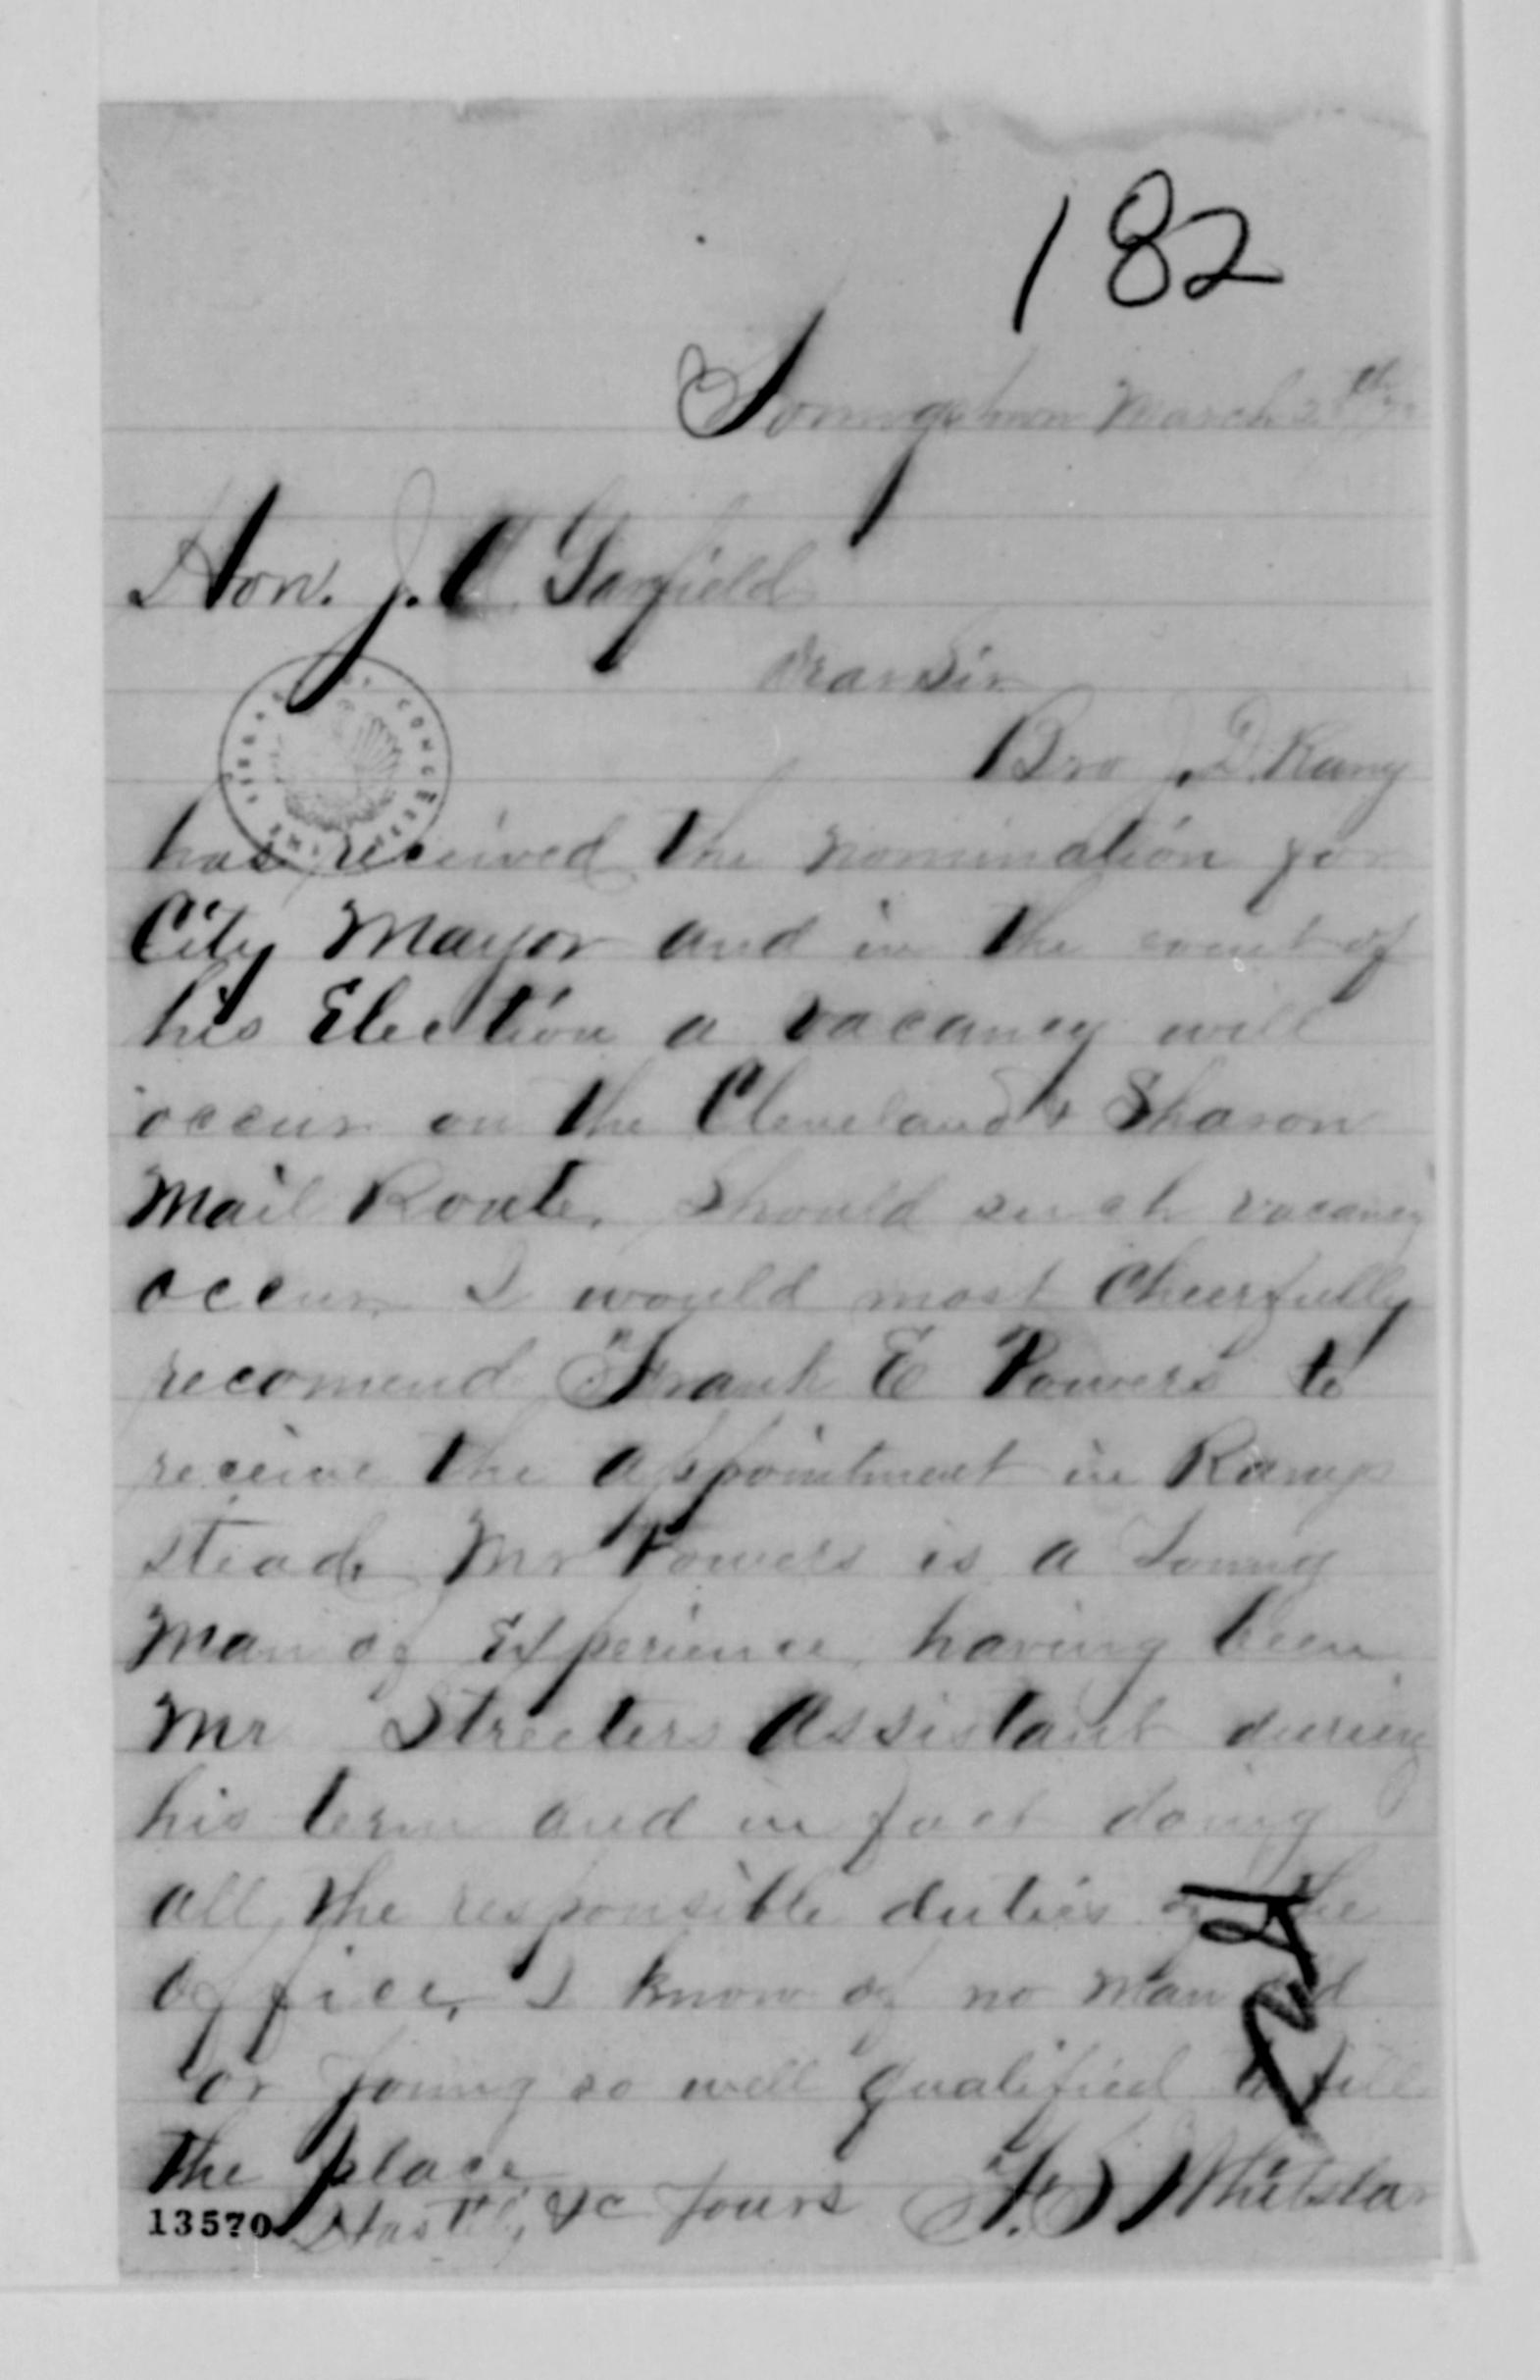 182
Youngstown March
Hon. J. A Garfield
Dear Sir
Bro J. D. Raney
has received the nomination for
City Mayor and in the event of
his Election a vacancy will
occur on the Cleveland & Sharon
Mail Route. Should such vacancy
occur I would most Cheerfully
recomend Frank E Powers to
receive the appointment in Raneys
stead, Mr Powers is a Young
Man of Experience, having been
Mr Streeters Assistant during
his term and in fact doing
all the responsible duties of the
Office, I know of no man old
or young so well qualified to fill
the place
Hastily &c Yours
13570